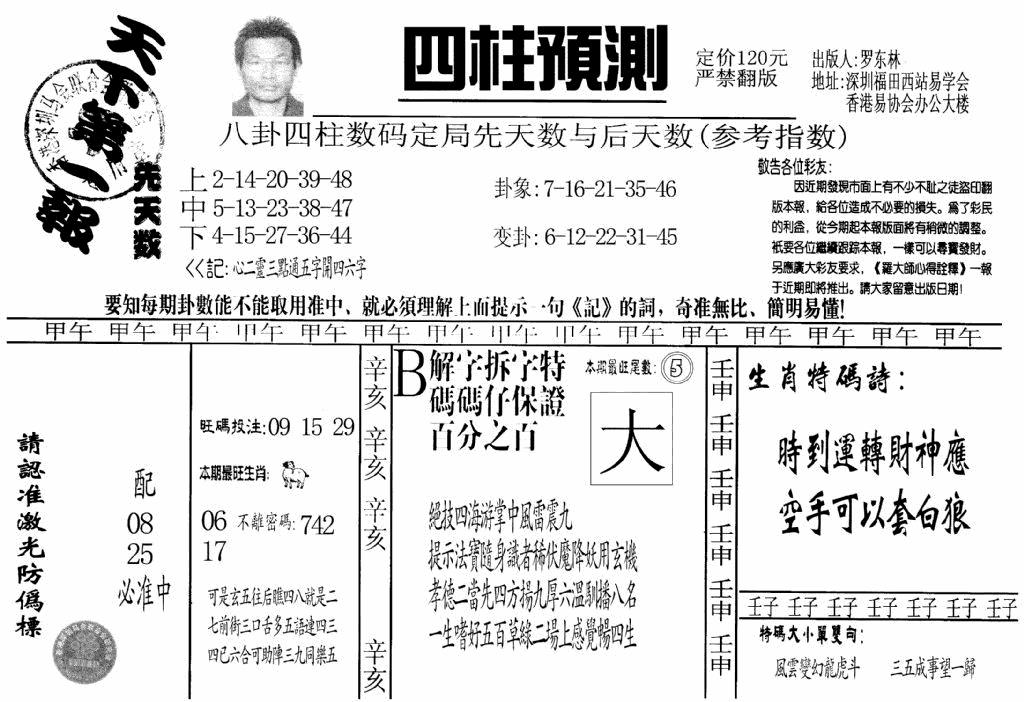 天下第一報
四柱預測
定价120元
严禁翻版
出版人:罗东林
地址:深圳福田西站易学会
香港易协会办公大楼
八卦四柱数码定局先天数与后天数(参考指数)
先天数
上 2-14-20-39-48
中 5-13-23-38-47
下 4-15-27-36-44
<<記:心二靈三點通五字開四六字
卦象:7-16-21-35-46
变卦:6-12-22-31-45
敬告各位彩友:
因近期發現市面上有不少不耻之徒盜印翻
版本報,給各位造成不必要的損失。爲了彩民
的利益,從今期起本報版面將有稍微的調整。
祇要各位繼續跟踪本報,一樣可以尋寶發財。
另應廣大彩友要求,《羅大師心得詮釋》一報
于近期即將推出。請大家留意出版日期!
要知每期卦數能不能取用准中、就必須理解上面提示一句《記》的詞,奇准無比、簡明易懂!
甲午 甲午 甲午 甲午 甲午 甲午 甲午 甲午 甲午 甲午 甲午 甲午 甲午 甲午 甲午
請認准激光防僞標
配
08
25
必准中
旺碼投注:09 15 29
本期最旺生肖:
06 不離密碼:742
17
可是玄五住后瞧四八就是二
七前街三口舌多五語連四三
四已六合可助陣三九同樂五
辛亥 辛亥 辛亥 辛亥
B解字拆字特
碼碼仔保證
百分之百
本期最旺尾數:5
大
絕技四海游掌中風雷震九
提示法寶隨身識者稀伏魔降妖用玄機
孝德二當先四方揚九厚六溫馴播八名
一生嗜好五百草綠二場上感覺暢四生
壬申 壬申 壬申 壬申 壬申 壬申
生肖特碼詩:
時到運轉財神應
空手可以套白狼
壬子 壬子 壬子 壬子 壬子 壬子 壬子
特碼大小單雙句:
風雲變幻龍虎斗 三五成事望一歸